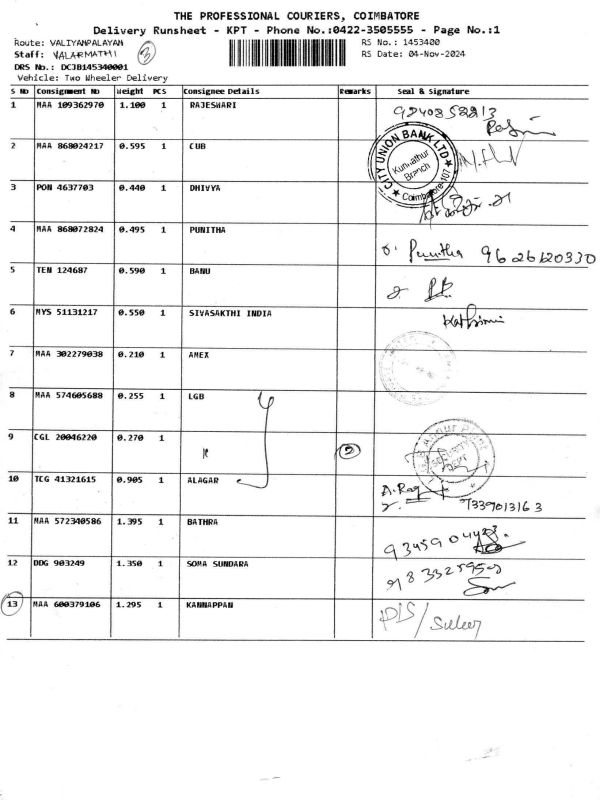 THE PROFESSIONAL COURIERS, COIMBATORE
Delivery Runsheet - KPT - Phone No.:0422-3505555 - Page No.:1
Route: VALIYAMPALAYAM RS No.: 1453400
Staff: VALARMATHI 3 RS Date: 04-Nov-2024
DRS No.: DC3B145340001
Vehicle: Two Wheeler Delivery
S No Consignment No Weight PCS Consignee Details Remarks Seal & Signature
1 MAA 109362970 1.100 1 RAJESWARI 9240858213
2 MAA 868024217 0.595 1 CUB CITY UNION BANK LTD Kurumbapalayam Branch Coimbatore-107
3 PON 4637703 0.440 1 DHIVYA
4 MAA 868072824 0.495 1 PUNITHA Punitha 9626120330
5 TEN 124687 0.590 1 BANU
6 MYS 51131217 0.550 1 SIVASAKTHI INDIA
7 MAA 302279038 0.210 1 AMEX
8 MAA 574605688 0.255 1 LGB
9 CGL 20046220 0.270 1 2
10 TCG 41321615 0.905 1 ALAGAR A.Raj 7339013163
11 MAA 572340586 1.395 1 BATHRA
12 DDG 903249 1.350 1 SOMA SUNDARA
13 MAA 600379106 1.295 1 KANNAPPAN DIS/Suleer